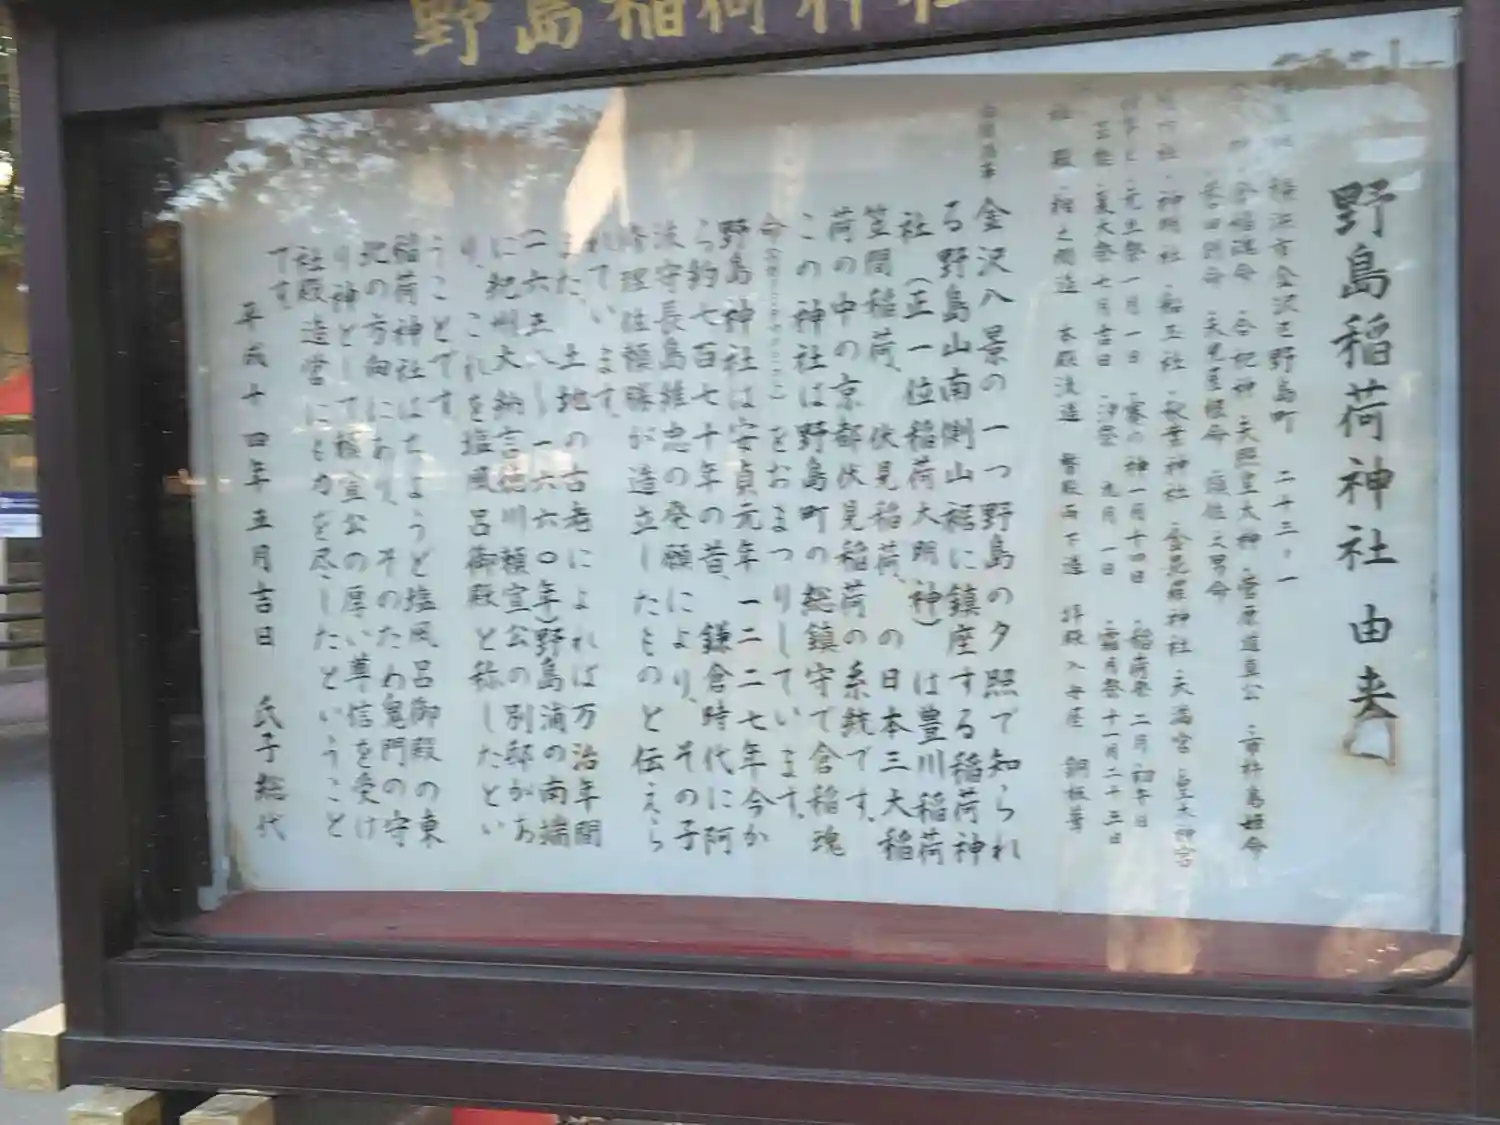 野島稲荷神社
野島稲荷神社 由来
横浜市金沢区野島町 二十三ノ一
倉稲魂命 合祀神 天照皇大神 菅原道真公 市杵島姫命
誉田別命 天児屋根命 須佐之男命
神明社 船玉社 秋葉神社 金毘羅神社 天満宮 皇大神宮
元旦祭 一月一日 寒の神 一月十四日 稲荷祭 二月初午日
夏大祭 七月吉日 汐祭 九月一日 霜月祭 十一月二十三日
社殿 相之間造 本殿流造 幣殿両下造 拝殿入母屋 銅板葺
金沢八景の一つ野島の夕照で知られ
る野島山南側山裾に鎮座する稲荷神
社(正一位稲荷大明神)は豊川稲荷
笠間稲荷、伏見稲荷、の日本三大稲
荷の中の京都伏見稲荷の系統です。
この神社は野島町の総鎮守で倉稲魂
命をおまつりしています。
野島神社は安貞元年、一二二七年今か
ら約七百七十年の昔、鎌倉時代に阿
波守長島維忠の発願により、その子
修理佐維勝が造立したものと伝えら
れています。
また、土地の古老によれば万治年間
(一六五八〜一六六〇年)野島浦の南端
に紀州大納言徳川頼宣公の別邸があ
り、これを塩風呂御殿と称したとい
うことです。
稲荷神社はちょうど塩風呂御殿の東
北の方向にあり、そのため鬼門の守
り神として頼宣公の厚い尊信を受け
社殿造営にも力を尽したということ
です。
平成十四年五月吉日 氏子総代